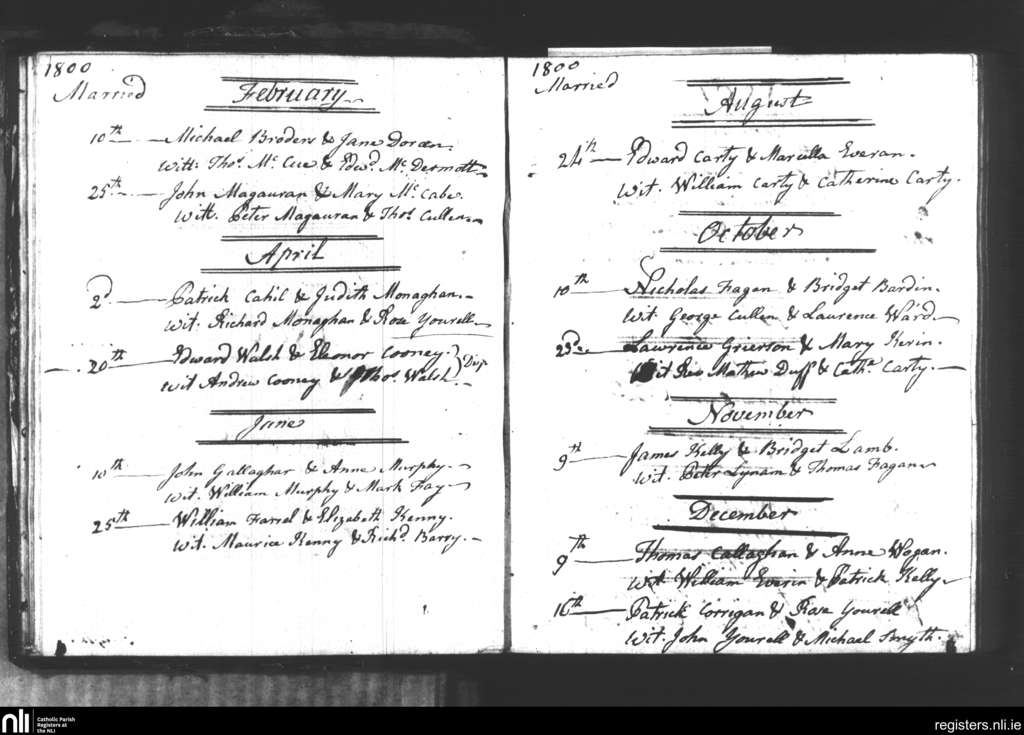 1800
Married
February
10th Michael Broders & Jane Doran.
Witt: Thos. Mc Cue & Edwd. Mc Dermott
25th John Magauran & Mary Mc Cabe.
Witt. Peter Magauran & Thos. Cullen
April
2d. Patrick Cahil & Judith Monaghan.
Wit. Richard Monaghan & Rose Yourell
20th Edward Walsh & Eleonor Cooney. Disp
Wit Andrew Cooney & Thos. Walsh.
June
10th John Gallaghar & Anne Murphy.
Wit. William Murphy & Mark Fay.
25th William Farrel & Elizabeth Kenny.
Wit. Maurice Kenny & Richd. Barry.
1800
Married
August
24th Edward Carty & Marcella Everan.
Wit. William Carty & Catherine Carty.
October
10th Nicholas Fagan & Bridget Bardin.
Wit George Cullen & Laurence Ward
23d. Lawrence Grierson & Mary Kerin.
Wit Rev Mathew Duff & Cathe. Carty.
November
9th James Kelly & Bridget Lamb.
Wit. Peter Lynam & Thomas Fagan
December
9th Thomas Callaghan & Anne Wogan.
Wit William Everin & Patrick Kelly
16th Patrick Corrigan & Rose Yourell
Wit. John Yourell & Michael Smyth.
nli
Catholic Parish
Registers at
the NLI
registers.nli.ie